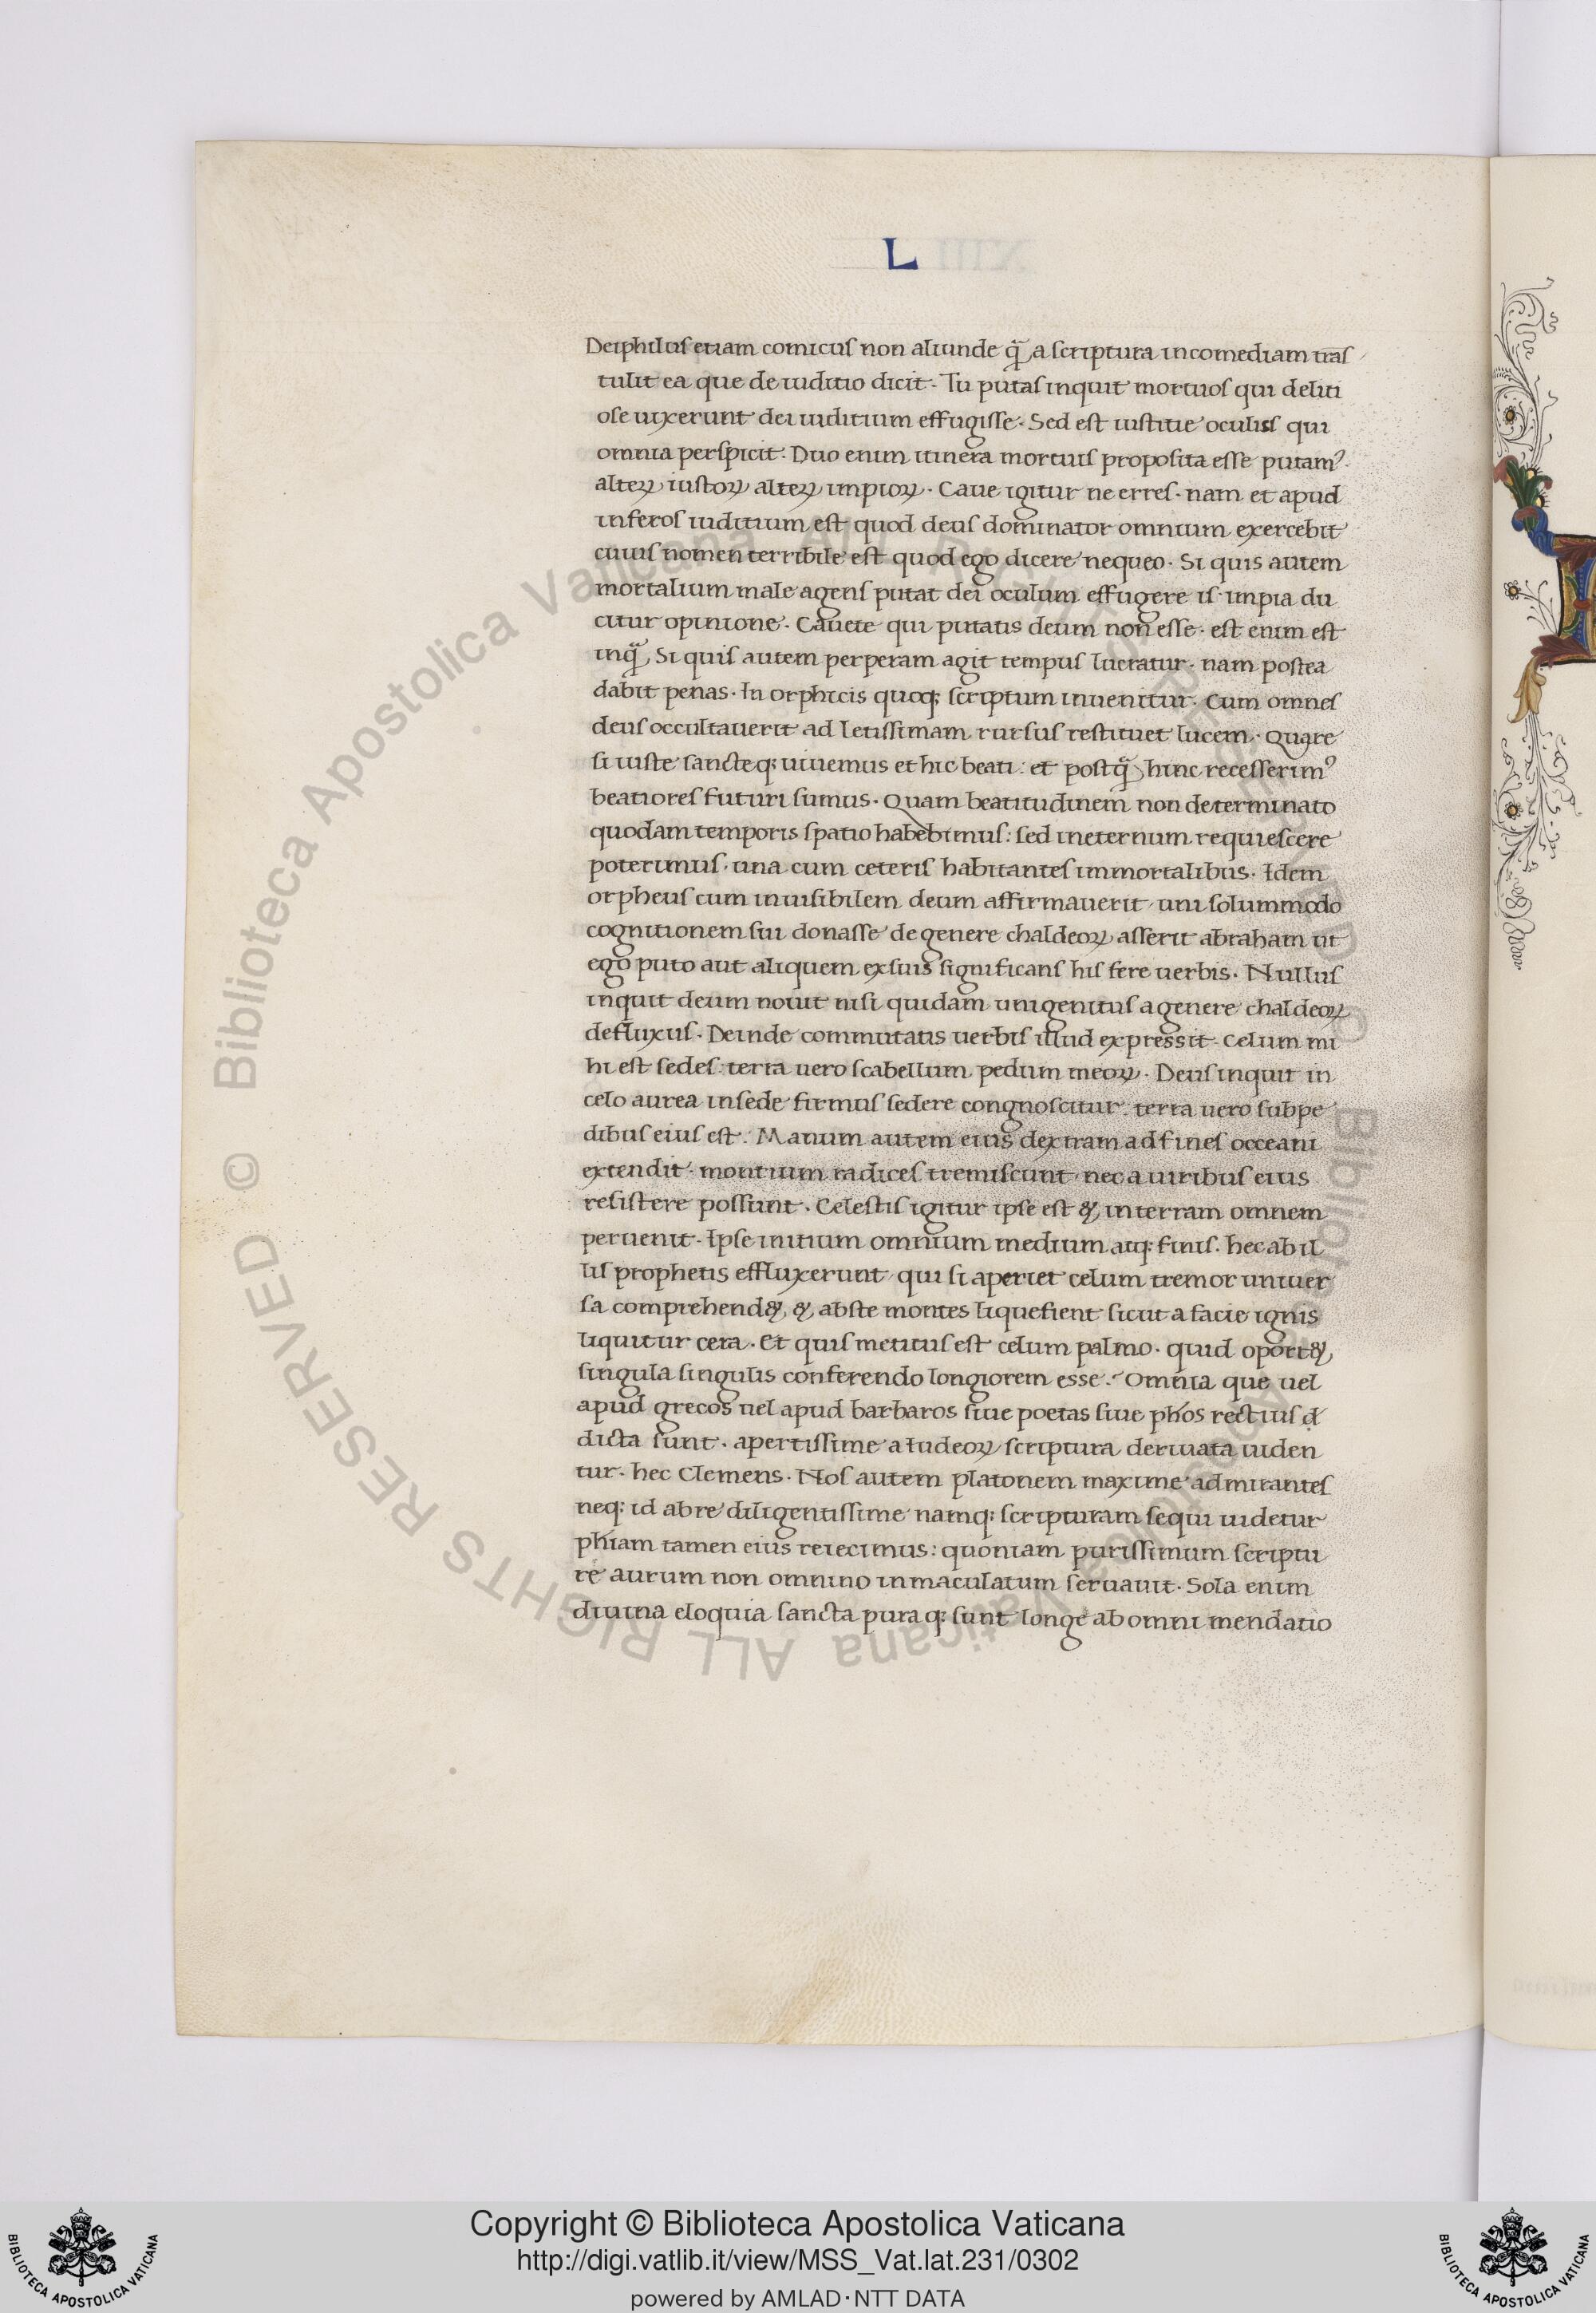 L
Deiphilus etiam comicus non aliunde q̃ a scriptura in comediam trãs
tulit ea que de iuditio dicit. Tu putas inquit mortuos qui deliti
ose uixerunt dei iuditium effugisse. Sed est iustitie oculus qui
omnia perspicit: Duo enim itinera mortuis proposita esse putamꝰ.
alteꝝ iustoꝝ alteꝝ impioꝝ. Caue igitur ne erres. nam et apud
inferos iuditium est quod deus dominator omnium exercebit
cuius nomen terribile est quod ego dicere nequeo. Si quis autem
mortalium male agens putat dei oculum effugere is impia du
citur opinione. Cauete qui putatis deum non esse. est enim est
inq̃. Si quis autem perperam agit tempus lucratur. nam postea
dabit penas. In orphicis quoq; scriptum inuenitur. Cum omnes
deus occultauerit ad letissimam rursus restituet lucem. Quare
si iuste sancteq; uiuemus et hic beati: et postq̃ hinc recesserimꝰ
beatiores futuri sumus. Quam beatitudinem non determinato
quodam temporis spatio habebimus: sed in eternum requiescere
poterimus. una cum ceteris habitantes immortalibus. Idem
orpheus cum inuisibilem deum affirmauerit. uni solummodo
cognitionem sui donasse de genere chaldeoꝝ asserit abraham ut
ego puto aut aliquem ex suis significans his fere uerbis. Nullus
inquit deum nouit nisi quidam unigenitus a genere chaldeoꝝ
defluxus. Deinde commutatis uerbis illud expressit. Celum mi
hi est sedes: terra uero scabellum pedum meoꝝ. Deus inquit in
celo aurea in sede firmus sedere congnoscitur. terra uero sub pe
dibus eius est: Manum autem eius dextram ad fines occeani
extendit. montium radices tremiscunt. nec a uiribus eius
resistere possunt. Celestis igitur ipse est & in terram omnem
peruenit. Ipse initium omnium medium atq; finis. hec ab il
lis prophetis effluxerunt. qui si aperiet celum tremor uniuer
sa comprehend& & abste montes liquefient sicut a facie ignis
liquitur cera. Et quis metitus est celum palmo. quid oport&
singula singulis conferendo longiorem esse. Omnia que uel
apud grecos uel apud barbaros siue poetas siue phos rectius đ
dicta sunt. apertissime a Iudeoꝝ scriptura deriuata uiden
tur. hec Clemens. Nos autem platonem maxime admirantes
neq; id ab re diligentissime namq; scripturam sequi uidetur
phiam tamen eius reiecimus: quoniam purissimum scriptu
re aurum non omnino inmaculatum seruauit. Sola enim
diuina eloquia sancta puraq; sunt longe ab omni mendatio
© Biblioteca Apostolica Vaticana ALL RIGHTS RESERVED
© Biblioteca Apostolica Vaticana ALL RIGHTS RESERVED
Copyright © Biblioteca Apostolica Vaticana
http://digi.vatlib.it/view/MSS_Vat.lat.231/0302
powered by AMLAD·NTT DATA
BIBLIOTECA APOSTOLICA VATICANA
BIBLIOTECA APOSTOLICA VATICANA